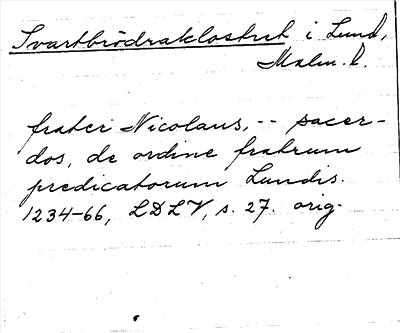 Svartbrödraklostret i Lund,
Malm. l.
frater Nicolaus, -- sacer-
dos, de ordine fratrum
predicatorum Lundis.
1234-66, LDLV, s. 27. orig.